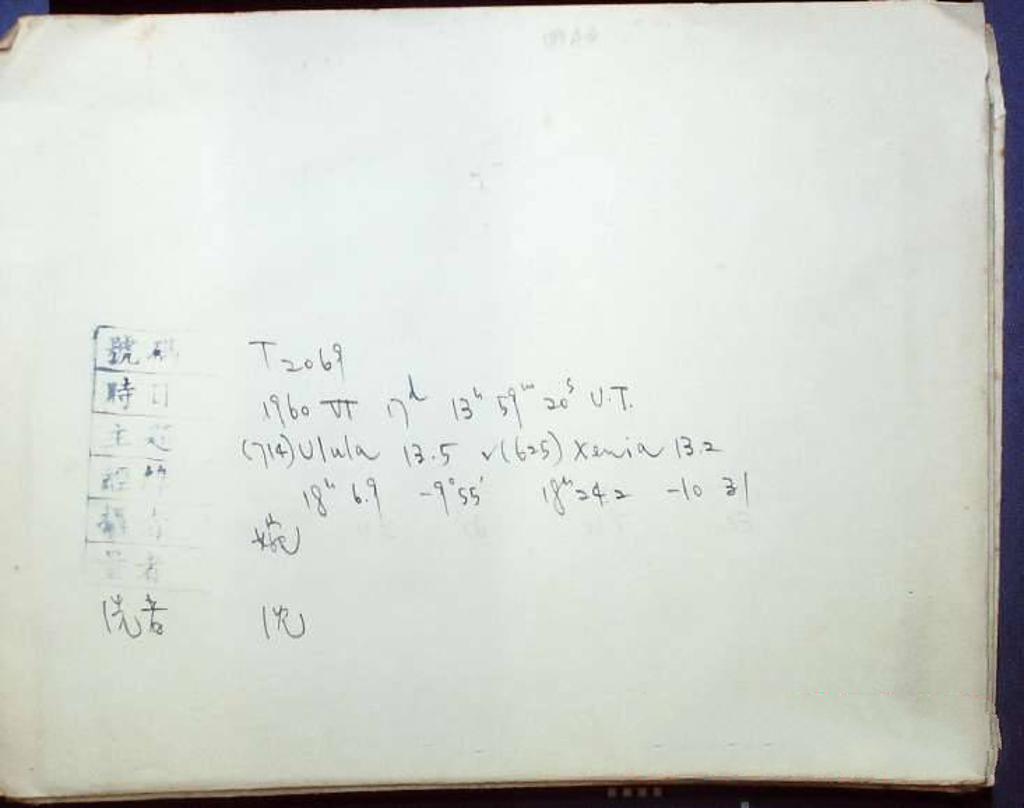 號碼 T2069
時日 1960 VI 17d 13h 59m 20s U.T.
主題 (714) Ulula 13.5 v(625) Xenia 13.2
18h 6.9 -9°55' 18h 24.2 -10 31
婉
者
洗者 沈